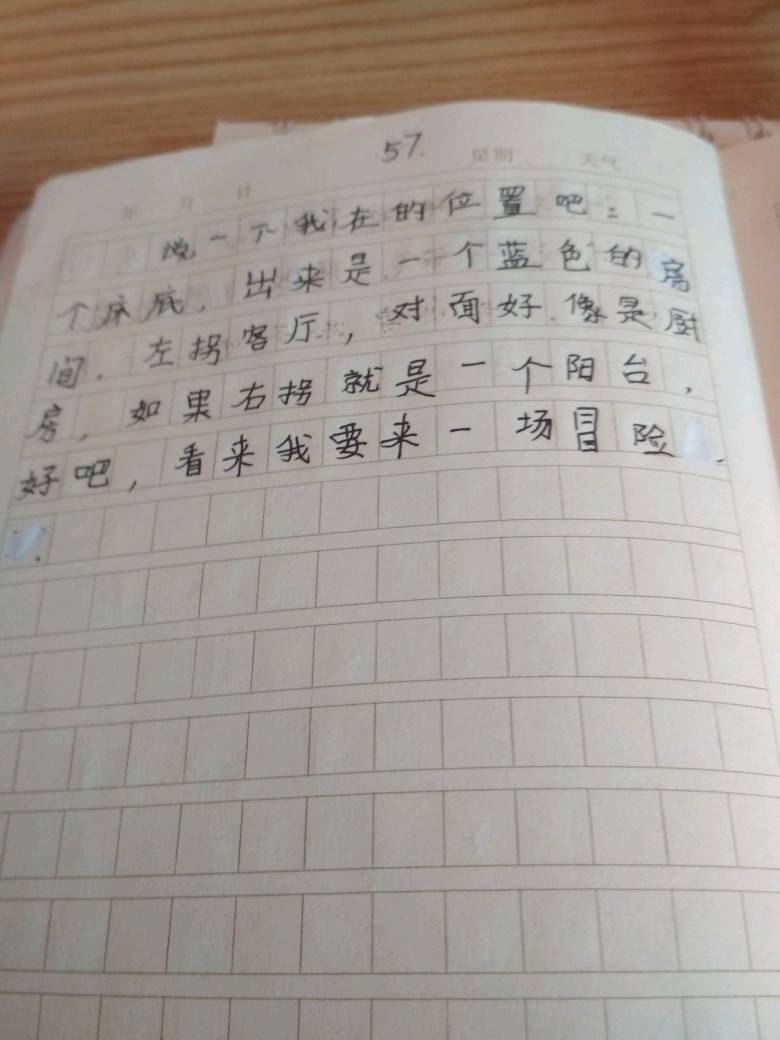 57.
年 月 日 星期 天气
说一下我在的位置吧：一
个床底，出来是一个蓝色的房
间．左拐客厅，对面好像是厨
房，如果右拐就是一个阳台，
好吧，看来我要来一场冒险
．